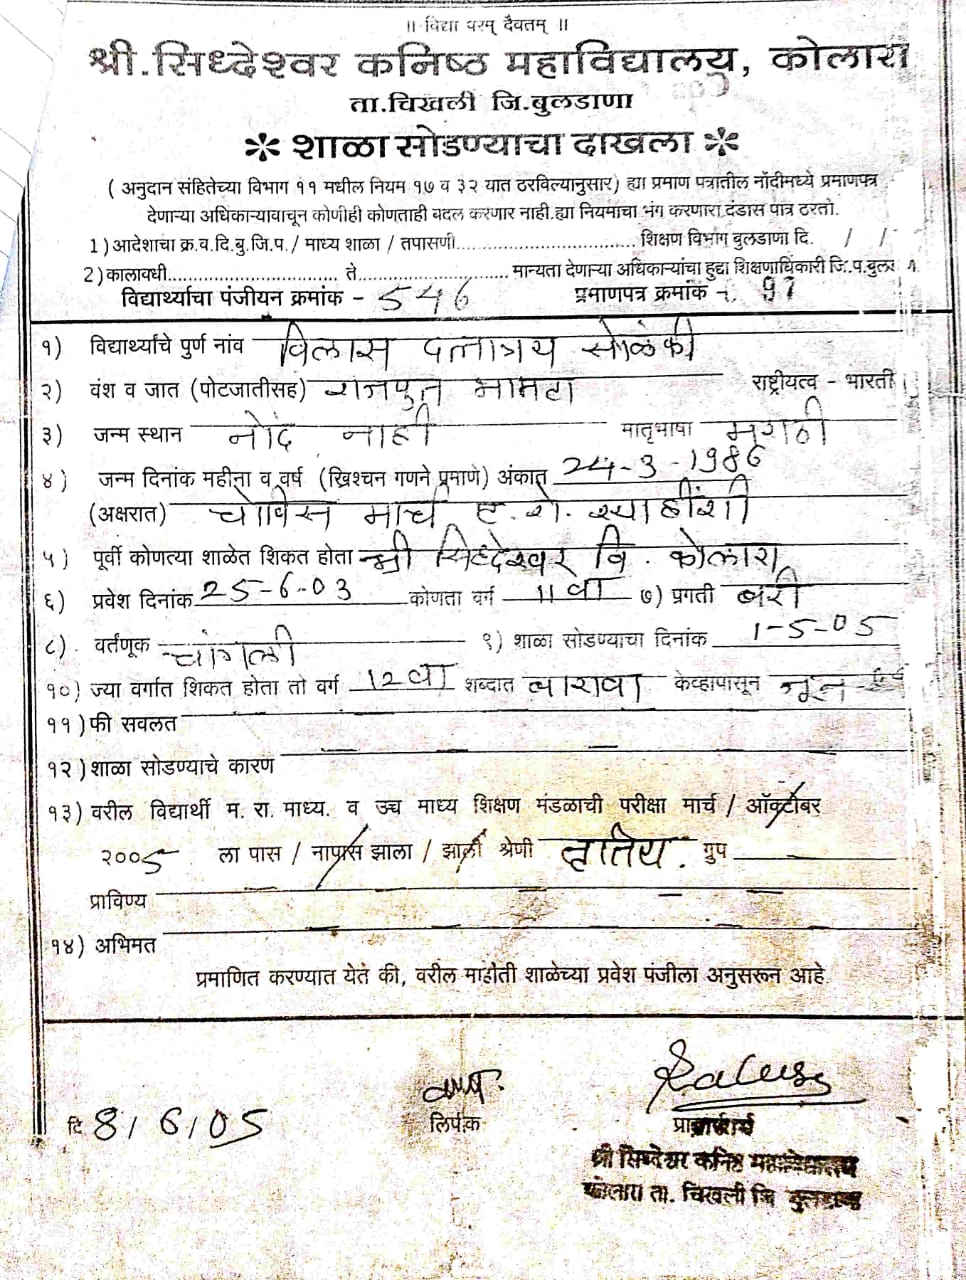 ॥ विद्या परम् दैवतम् ॥
श्री.सिध्देश्वर कनिष्ठ महाविद्यालय, कोलारा
ता.चिखली जि.बुलडाणा
✻ शाळा सोडण्याचा दाखला ✻
( अनुदान संहितेच्या विभाग ११ मधील नियम १७ व ३२ यात ठरविल्यानुसार) ह्या प्रमाण पत्रातील नोंदीमध्ये प्रमाणपत्र
देणाऱ्या अधिकाऱ्यावाचून कोणीही कोणताही बदल करणार नाही.ह्या नियमाचा भंग करणारा दंडास पात्र ठरतो.
1) आदेशाचा क्र.व.दि.बु.जि.प./ माध्य शाळा / तपासणी.................................... शिक्षण विभाग बुलडाणा दि. / /
2) कालावधी.................................. ते.............................. मान्यता देणाऱ्या अधिकाऱ्यांचा हुद्दा शिक्षणाधिकारी जि.प.बुल
विद्यार्थ्याचा पंजीयन क्रमांक - 546 प्रमाणपत्र क्रमांक - 97
१) विद्यार्थ्याचे पुर्ण नांव विलास दत्तात्रय सोळंकी
२) वंश व जात (पोटजातीसह) राजपुत भामटा राष्ट्रीयत्व - भारती
३) जन्म स्थान नोंद नाही मातृभाषा मराठी
४) जन्म दिनांक महीना व वर्ष (ख्रिश्चन गणने प्रमाणे) अंकात 24-3-1986
(अक्षरात) चोविस मार्च ए.शे. श्याहांशी
५) पूर्वी कोणत्या शाळेत शिकत होता श्री सिध्देश्वर वि. कोलारा
६) प्रवेश दिनांक 25-6-03 कोणता वर्ग 11 वा ७) प्रगती बरी
८). वर्तणूक चांगली ९) शाळा सोडण्याचा दिनांक 1-5-05
१०) ज्या वर्गात शिकत होता तो वर्ग 12 वा शब्दात बारावा केव्हापासून जून
११) फी सवलत
१२) शाळा सोडण्याचे कारण
१३) वरील विद्यार्थी म. रा. माध्य. व उच माध्य शिक्षण मंडळाची परीक्षा मार्च / ऑक्टोबर
२००5 ला पास / नापास झाला / झाली श्रेणी तृतिय. ग्रुप
प्राविण्य
१४) अभिमत
प्रमाणित करण्यात येते की, वरील माहीती शाळेच्या प्रवेश पंजीला अनुसरून आहे.
दि 8/6/05 लिपीक प्राचार्य
श्री सिध्देश्वर कनिष्ठ महाविद्यालय
कोलारा ता. चिखली जि बुलडाणा